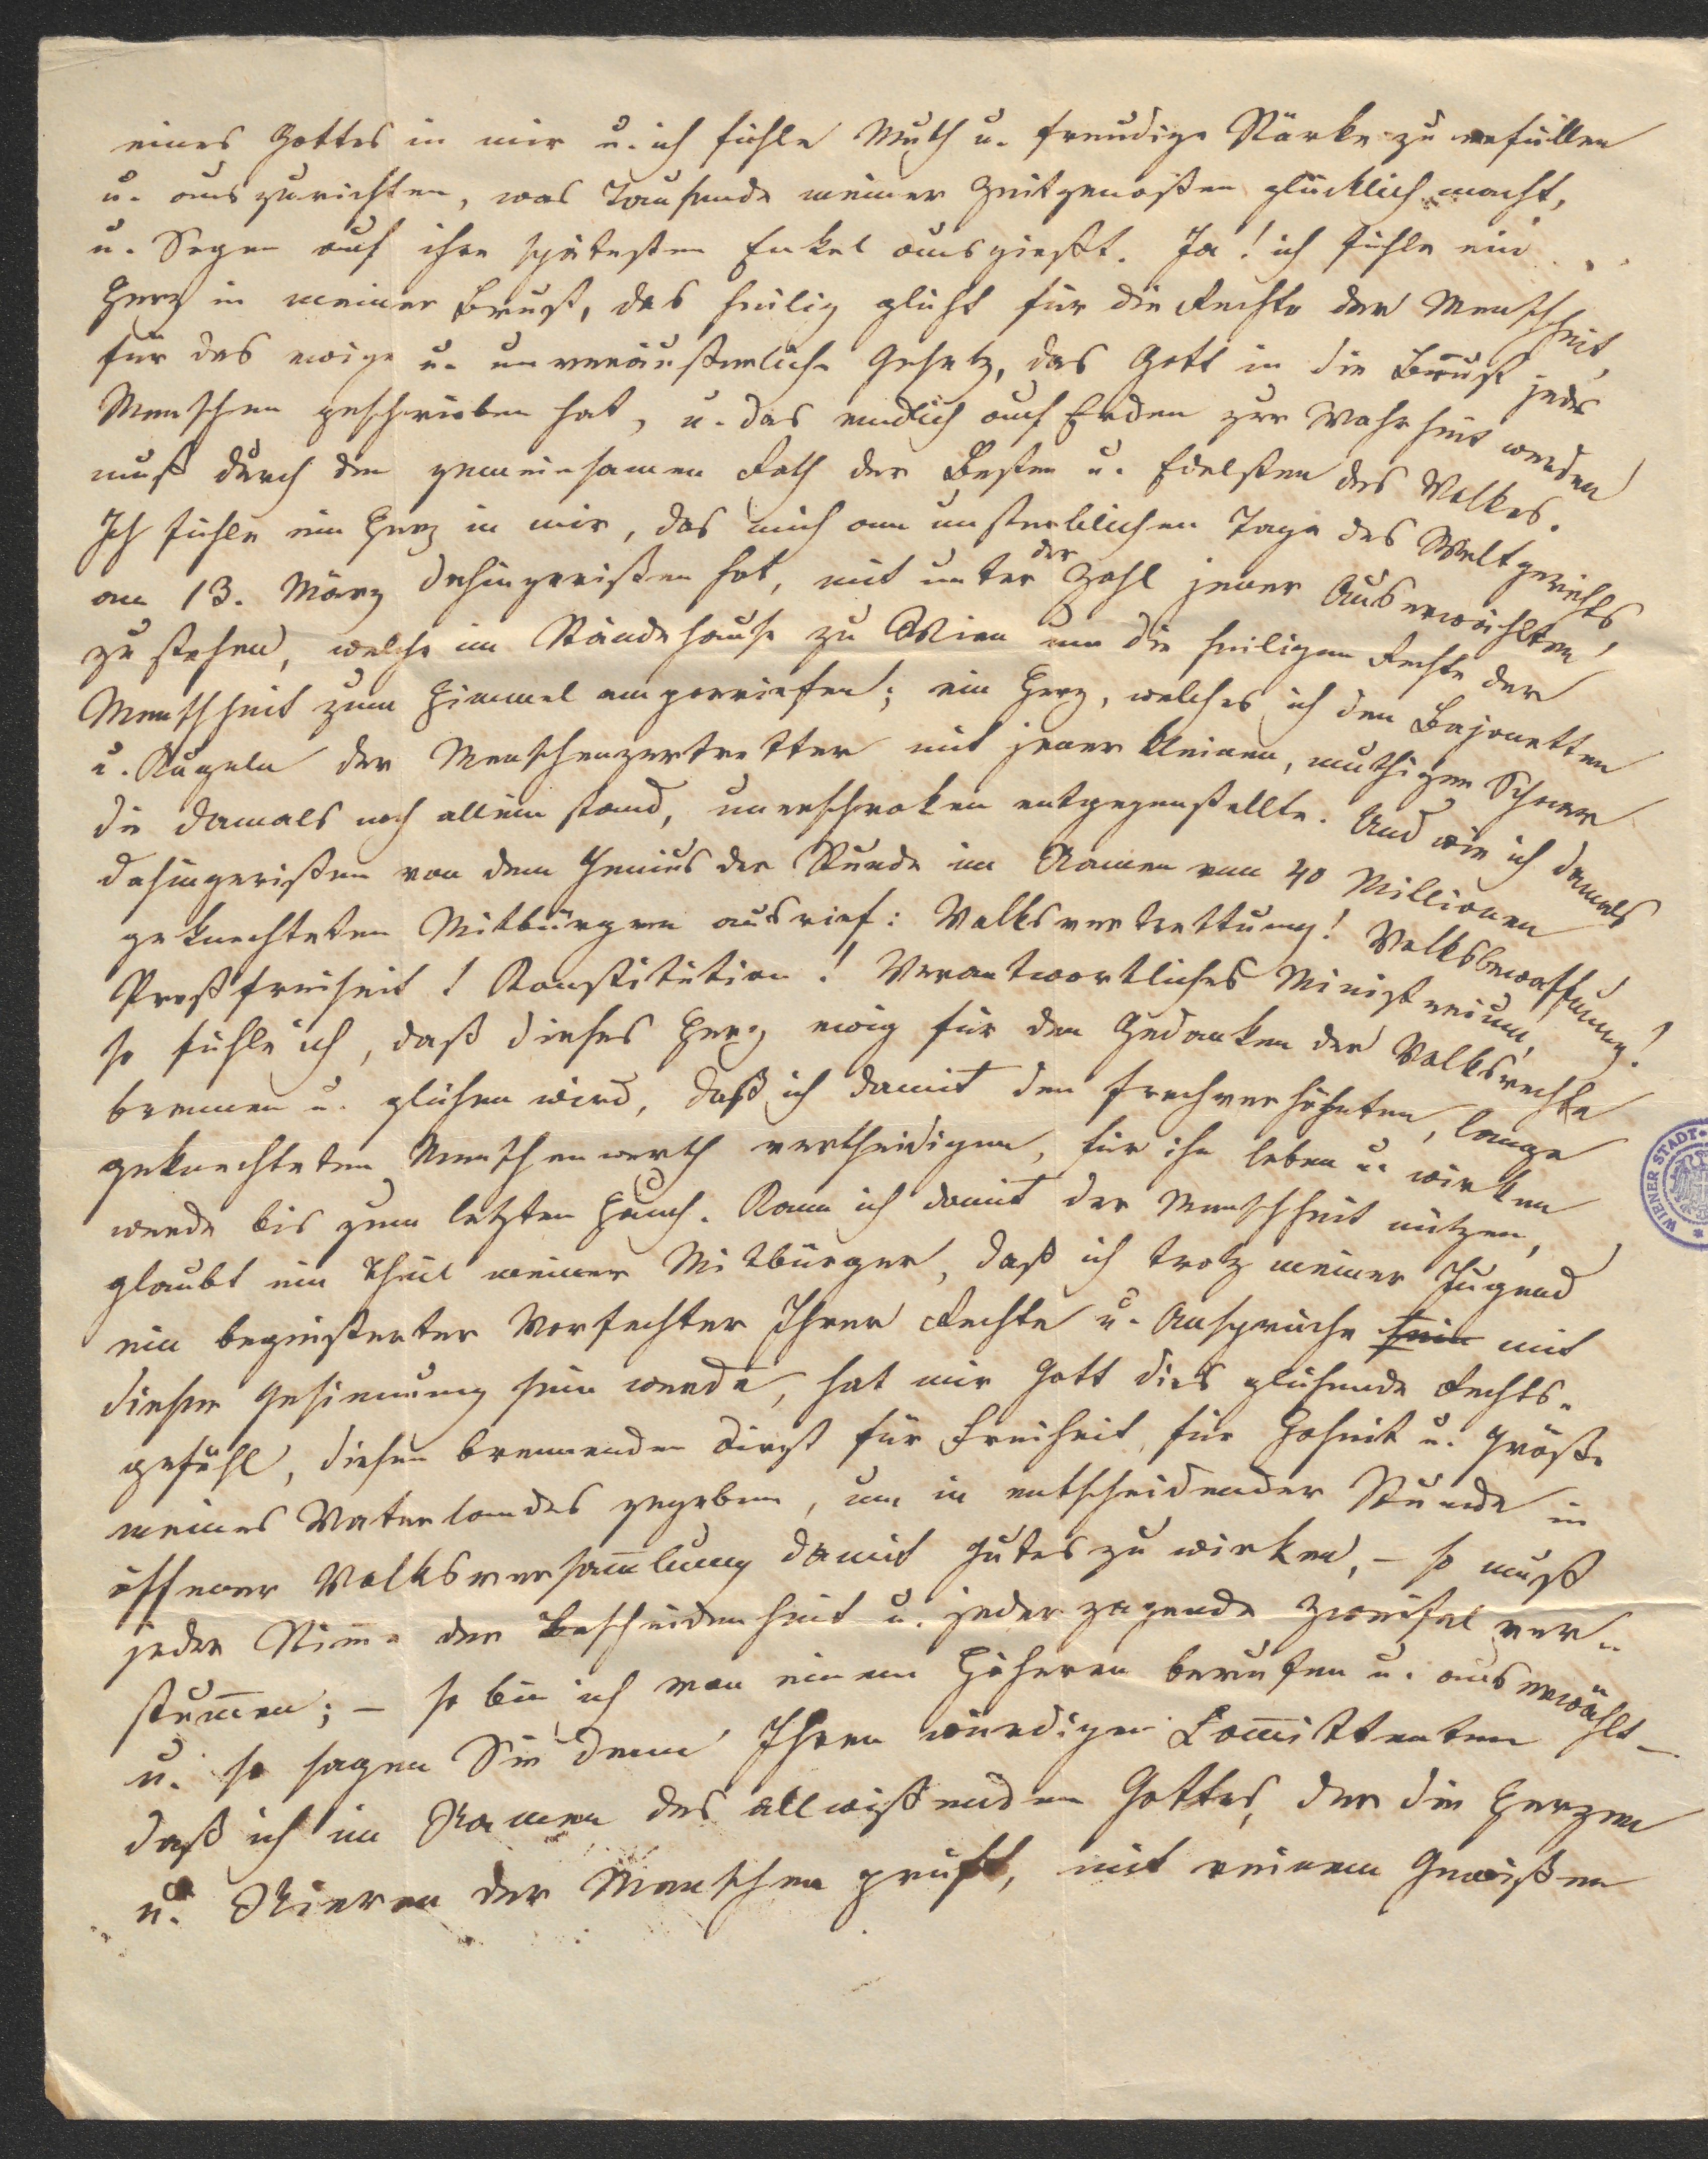 eines Gottes in mir u. ich fühle Muth u. freudige Stärke zu erfüllen
u. auszurichten, was Tausende meiner Zeitgenoßen glücklich macht,
u. Segen auf ihre spätesten Enkel ausgießt. Ja! ich fühle ein
Herz in meiner Brust, das heilig glüht für die Rechte der Menschheit,
für das ewige u. unveräußerliche Gesetz, das Gott in die Brust jedes
Menschen geschrieben hat, u. das endlich auf Erden zur Wahrheit werden
muß durch den gemeinsamen Rath der Besten u. Edelsten des Volkes.
Ich fühle ein Herz in mir, das mich am unsterblichen Tage des Weltgerichts
am 13. März dahingerißen hat, mit unter der Zahl jener Auserwählten
zu stehen, welche im Ständehause zu Wien um die heiligen Rechte der
Menschheit zum Himmel emporriefen; ein Herz, welches ich den Bajonetten
u. Kugeln der Menschenzertretter mit jener kleinen, muthigen Schaar
die damals noch allein stand, unerschroken entgegenstellte. Und wie ich damals
dahingerißen von dem Genius der Stunde im Namen von 40 Millionen
geknechteten Mitbürgern ausrief: Volksvertrettung! Volksbewaffnung!
Preßfreiheit! Konstitution! Verantwortliches Ministerium!
so fühle ich, daß dieses Herz ewig für den Gedanken der Volksrechte
brennen u. glühen wird, daß ich damit den frechverhöhnten, lange
geknechteten Menschenwerth vertheidigen, für ihn leben u. wirken
werde bis zum letzten Hauch. Kann ich damit der Menschheit nützen,
glaubt ein Theil meiner Mitbürger, daß ich trotz meiner Jugend
ein begeisterter Vorfechter Ihrer Rechte u. Ansprüche sein mit
dieser Gesinnung sein werde, hat mir Gott dies glühende Rechts-
gefühl, diesen brennenden Durst für Freiheit, für Hoheit u. Größe
meines Vaterlandes gegeben, um in entscheidender Stunde in
offener Volksversam̅lung damit Gutes zu wirken, – so muß
jede Stim̅e der Bescheidenheit u. jeder zagende Zweifel ver-
stum̅en; – so bin ich von einem Höheren berufen u. auserwählt –
u. so sagen Sie denn Ihren würdigen Com̅ittenten
daß ich im Namen des allwißenden Gottes, der die Herzen
u. Nieren der Menschen prüft, mit reinem Gewißen
WIENER STADT-